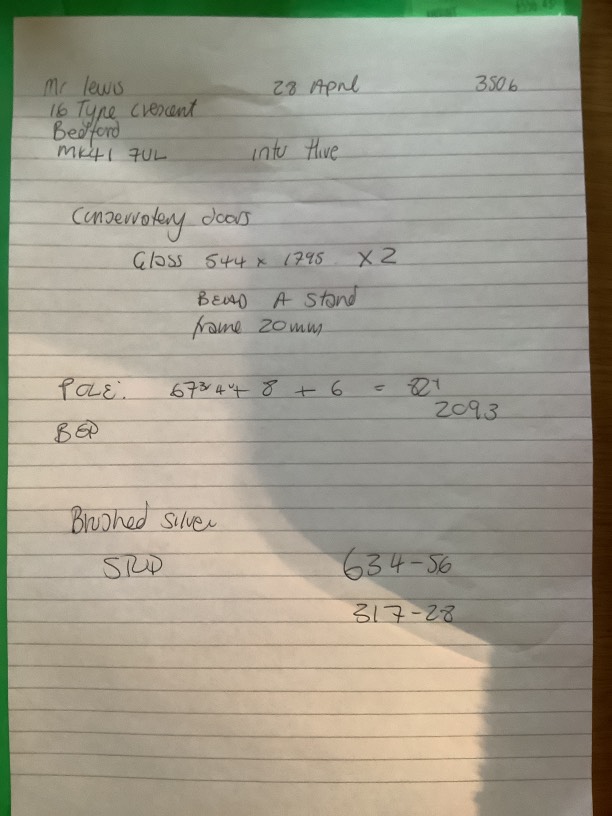 Mr lewis 28 April 3506
16 Type Crescent
Bedford
MK41 7UL into Hive
Conservatory doors
Glass 544 x 1795 X 2
BEAD A Stand
frame 20mm
POLE: 673/4" + 8 + 6 =
2093
Brushed silver
STUD 634-56
317-28